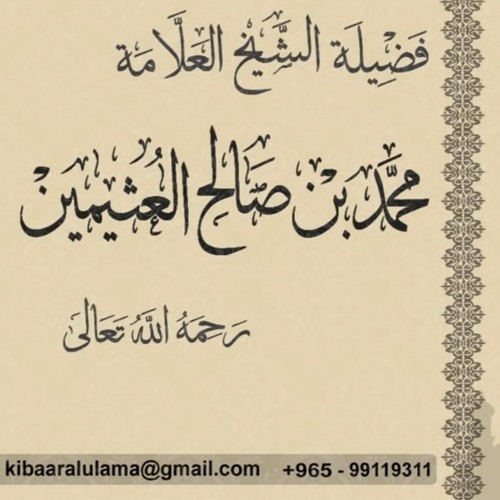 فَضِيلَة الشَّيْخ العَلَّامَة
مُحَمَّد بْن صَالِح العُثَيْمِين
رَحِمَهُ اللَّهُ تَعَالَى
kibaaralulama@gmail.com +965 - 99119311